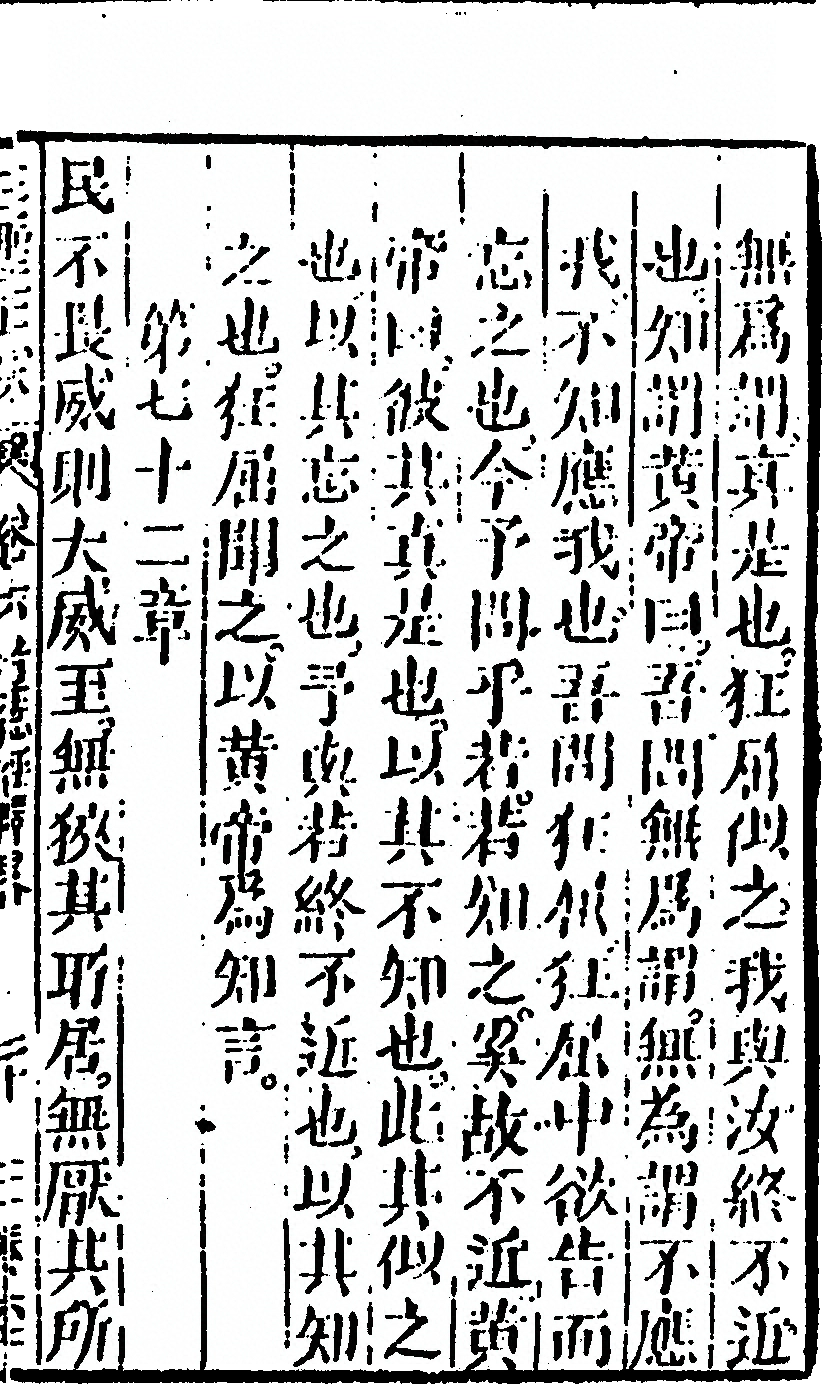 無爲謂真是也狂屈似之我與汝終不近
也知謂黃帝曰吾問無爲謂無為謂不應
我不知應我也吾問狂屈狂屈中欲告而
忘之也今予問乎若若知之奚故不近黃
帝曰彼其真是也以其不知也此其似之
也以其忘之也予與若終不近也以其知
之也狂屈聞之以黃帝爲知言
第七十二章
民不畏威則大威至無狹其所居無厭其所